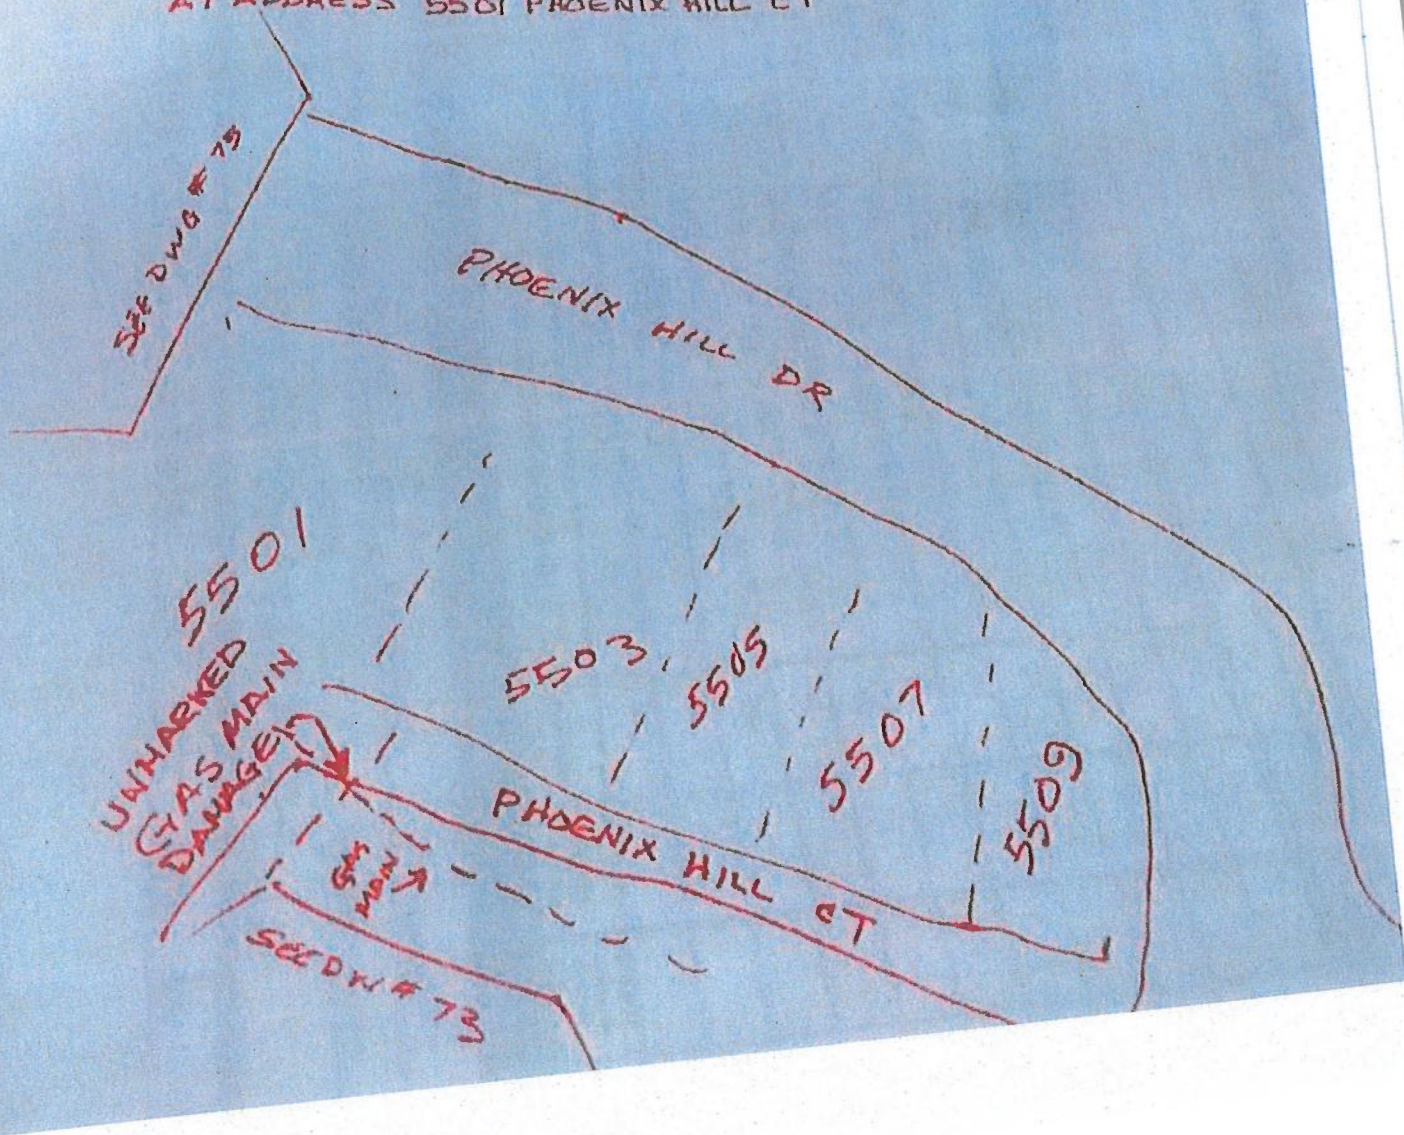 AT ADDRESS 5501 PHOENIX HILL CT
SEE DWG # 75
PHOENIX HILL DR
5501
UNMARKED
GAS MAIN
DAMAGE
5503
5505
5507
5509
PHOENIX HILL CT
GAS
MAIN
SEE DW # 73